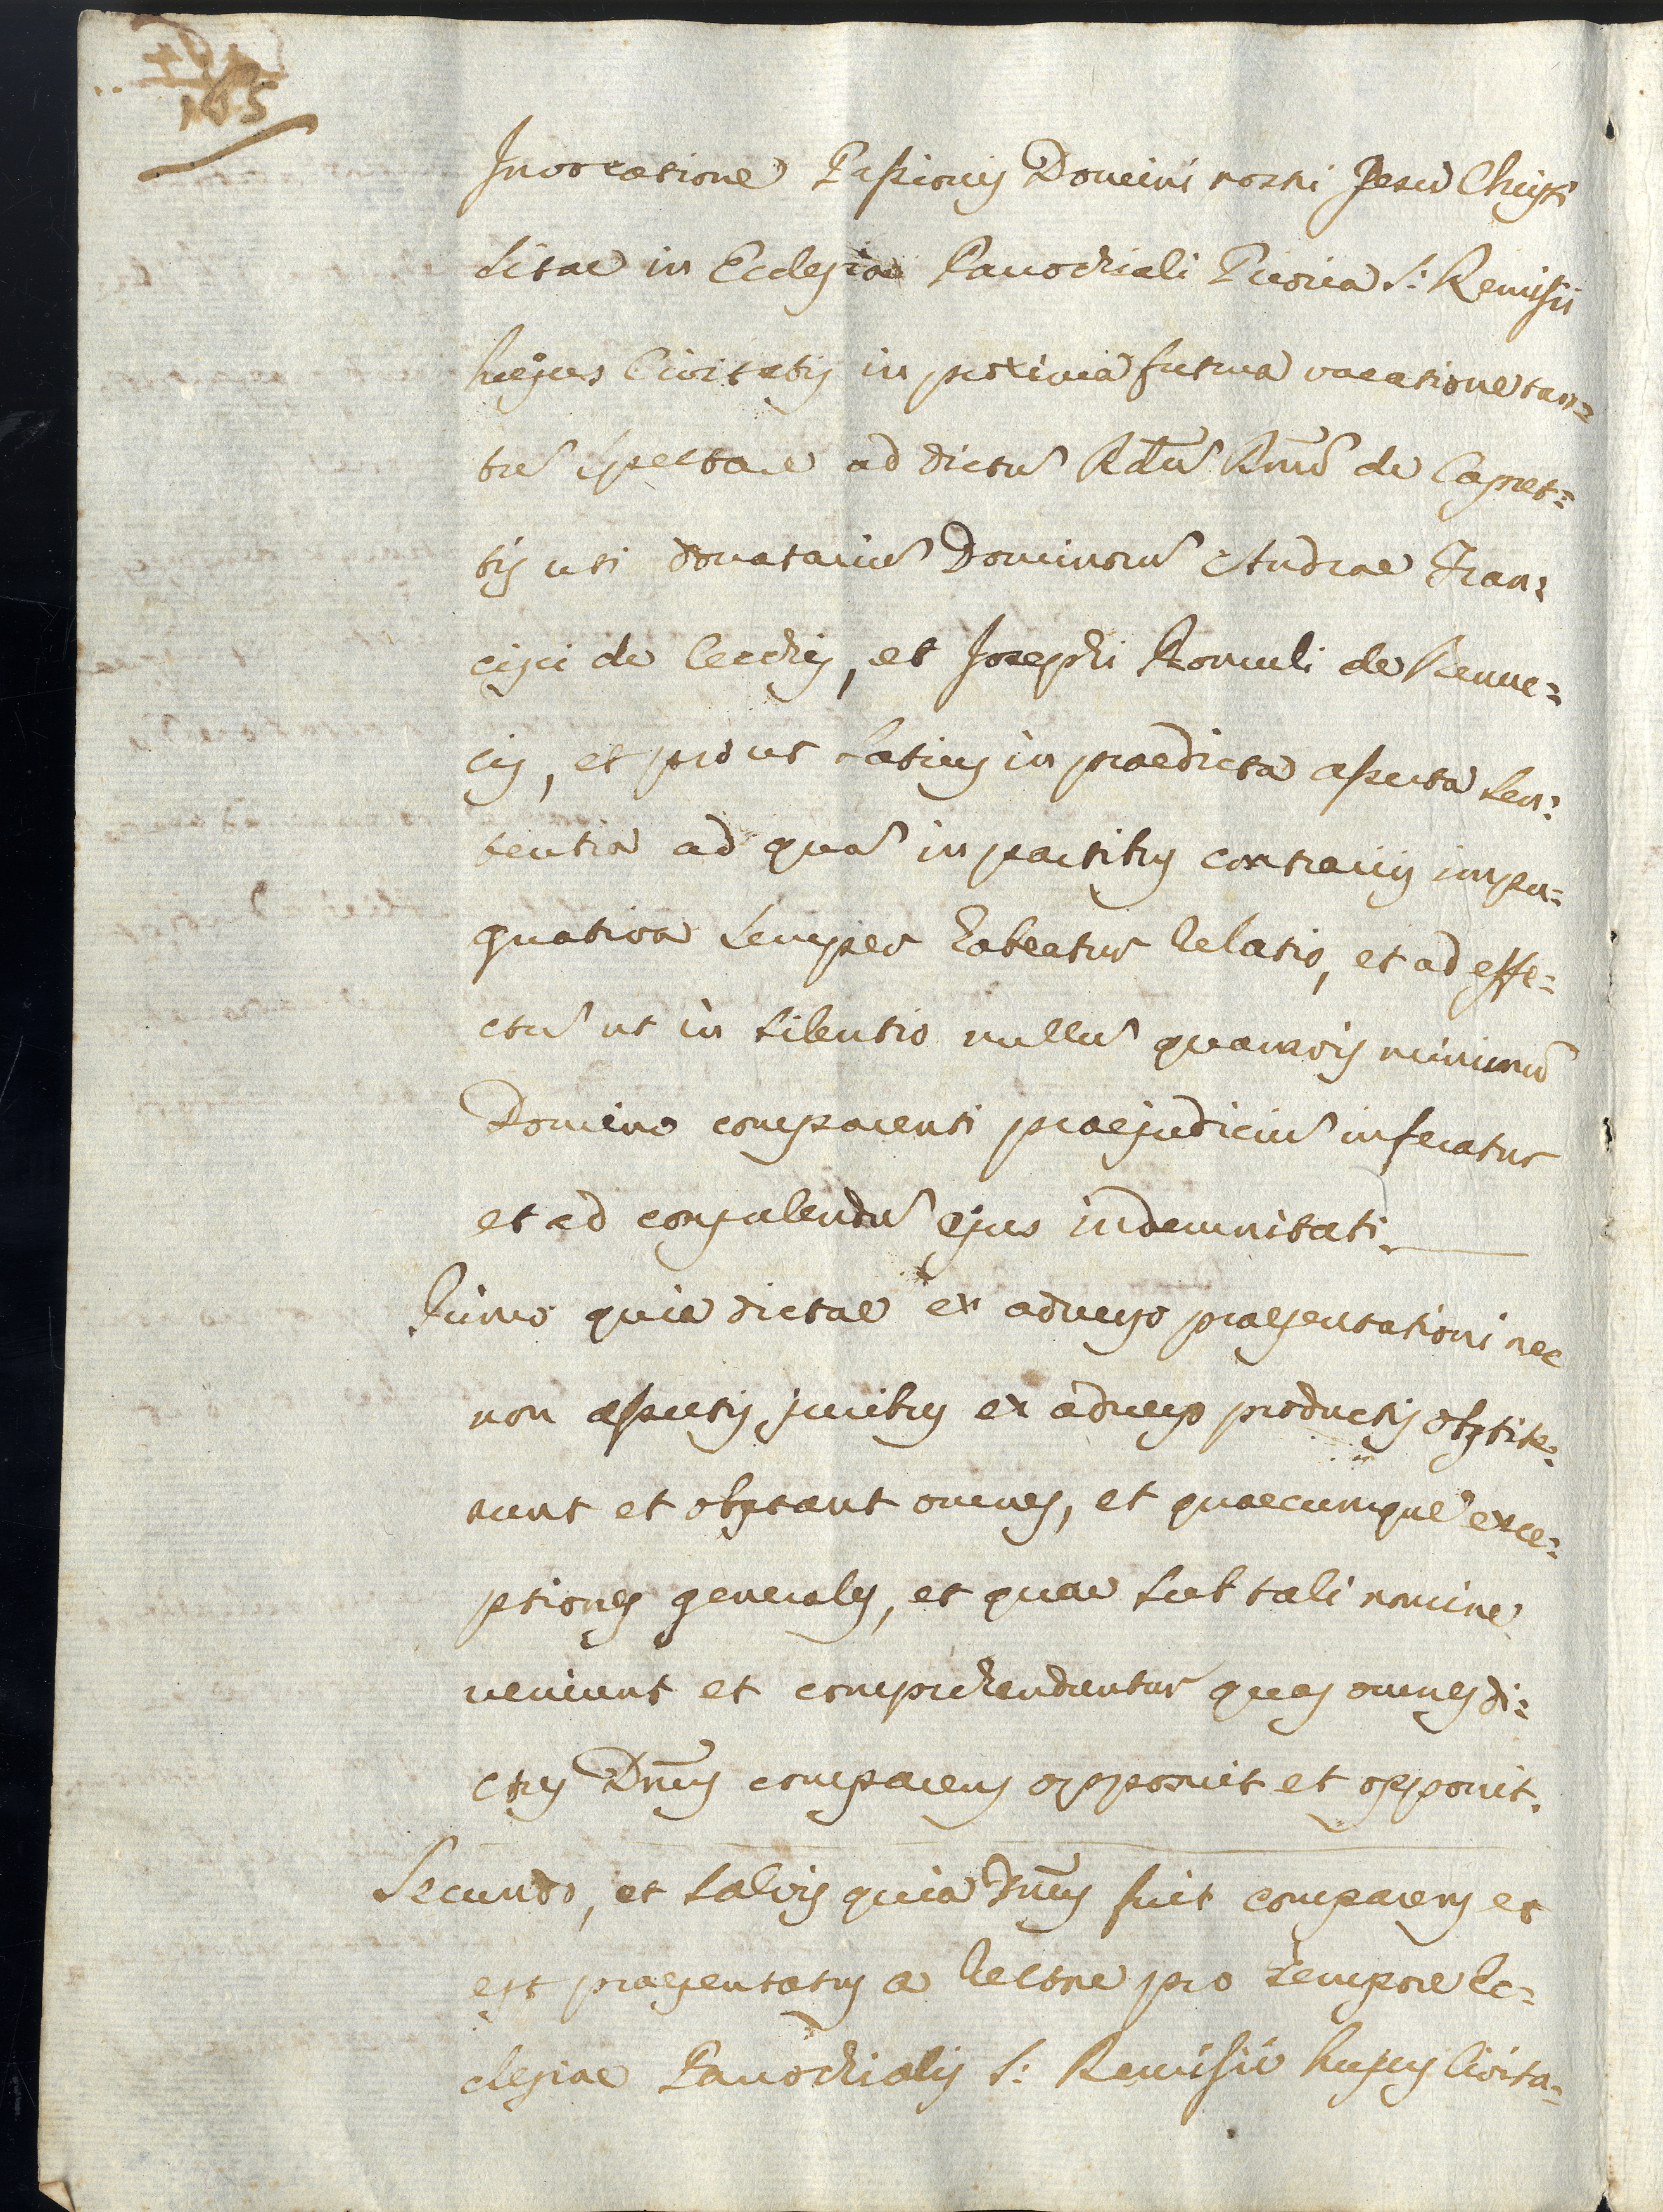 Invocatione Passionis Domini nostri Jesu Christi
sitae in Ecclesia Parochiali Priora S: Remisii
hujus Civitatis in proxima futura vacatione tan=
tũ spectare ad dictũ Rdũ Rmũ de Capret=
tis uti donatariũ Dominorũ Andrae Fran=
cisci de Cecchis, et Josephi Romuli de
cis, et prout latius in praedicta asserta Sen=
tentia ad quã in partibus contrariis impu=
gnativa semper habeatur relatio, et ad effe=
ctũ ut in silentio nullũ quamvis minimũ
Domino comparenti praejudiciũ inferatur
et ad consulendũ ejus indemnitati.
Primo quia dictae ex adverso praesentationi nec
non assertis juribus ex adverso productis obstite=
runt et obstant omnes, et quaecumque exce=
ptiones generales, et quae sub tali nomine
veniunt et comprehenduntur quas omnes di=
ctus Dnũs comparens opposuit et opponit.
Secundo, et salvis quia Dnũs fuit comparens et
est praesentatus a Rectore pro tempore Ec=
clesiae Parochialis S: Remisii hujus Civita=